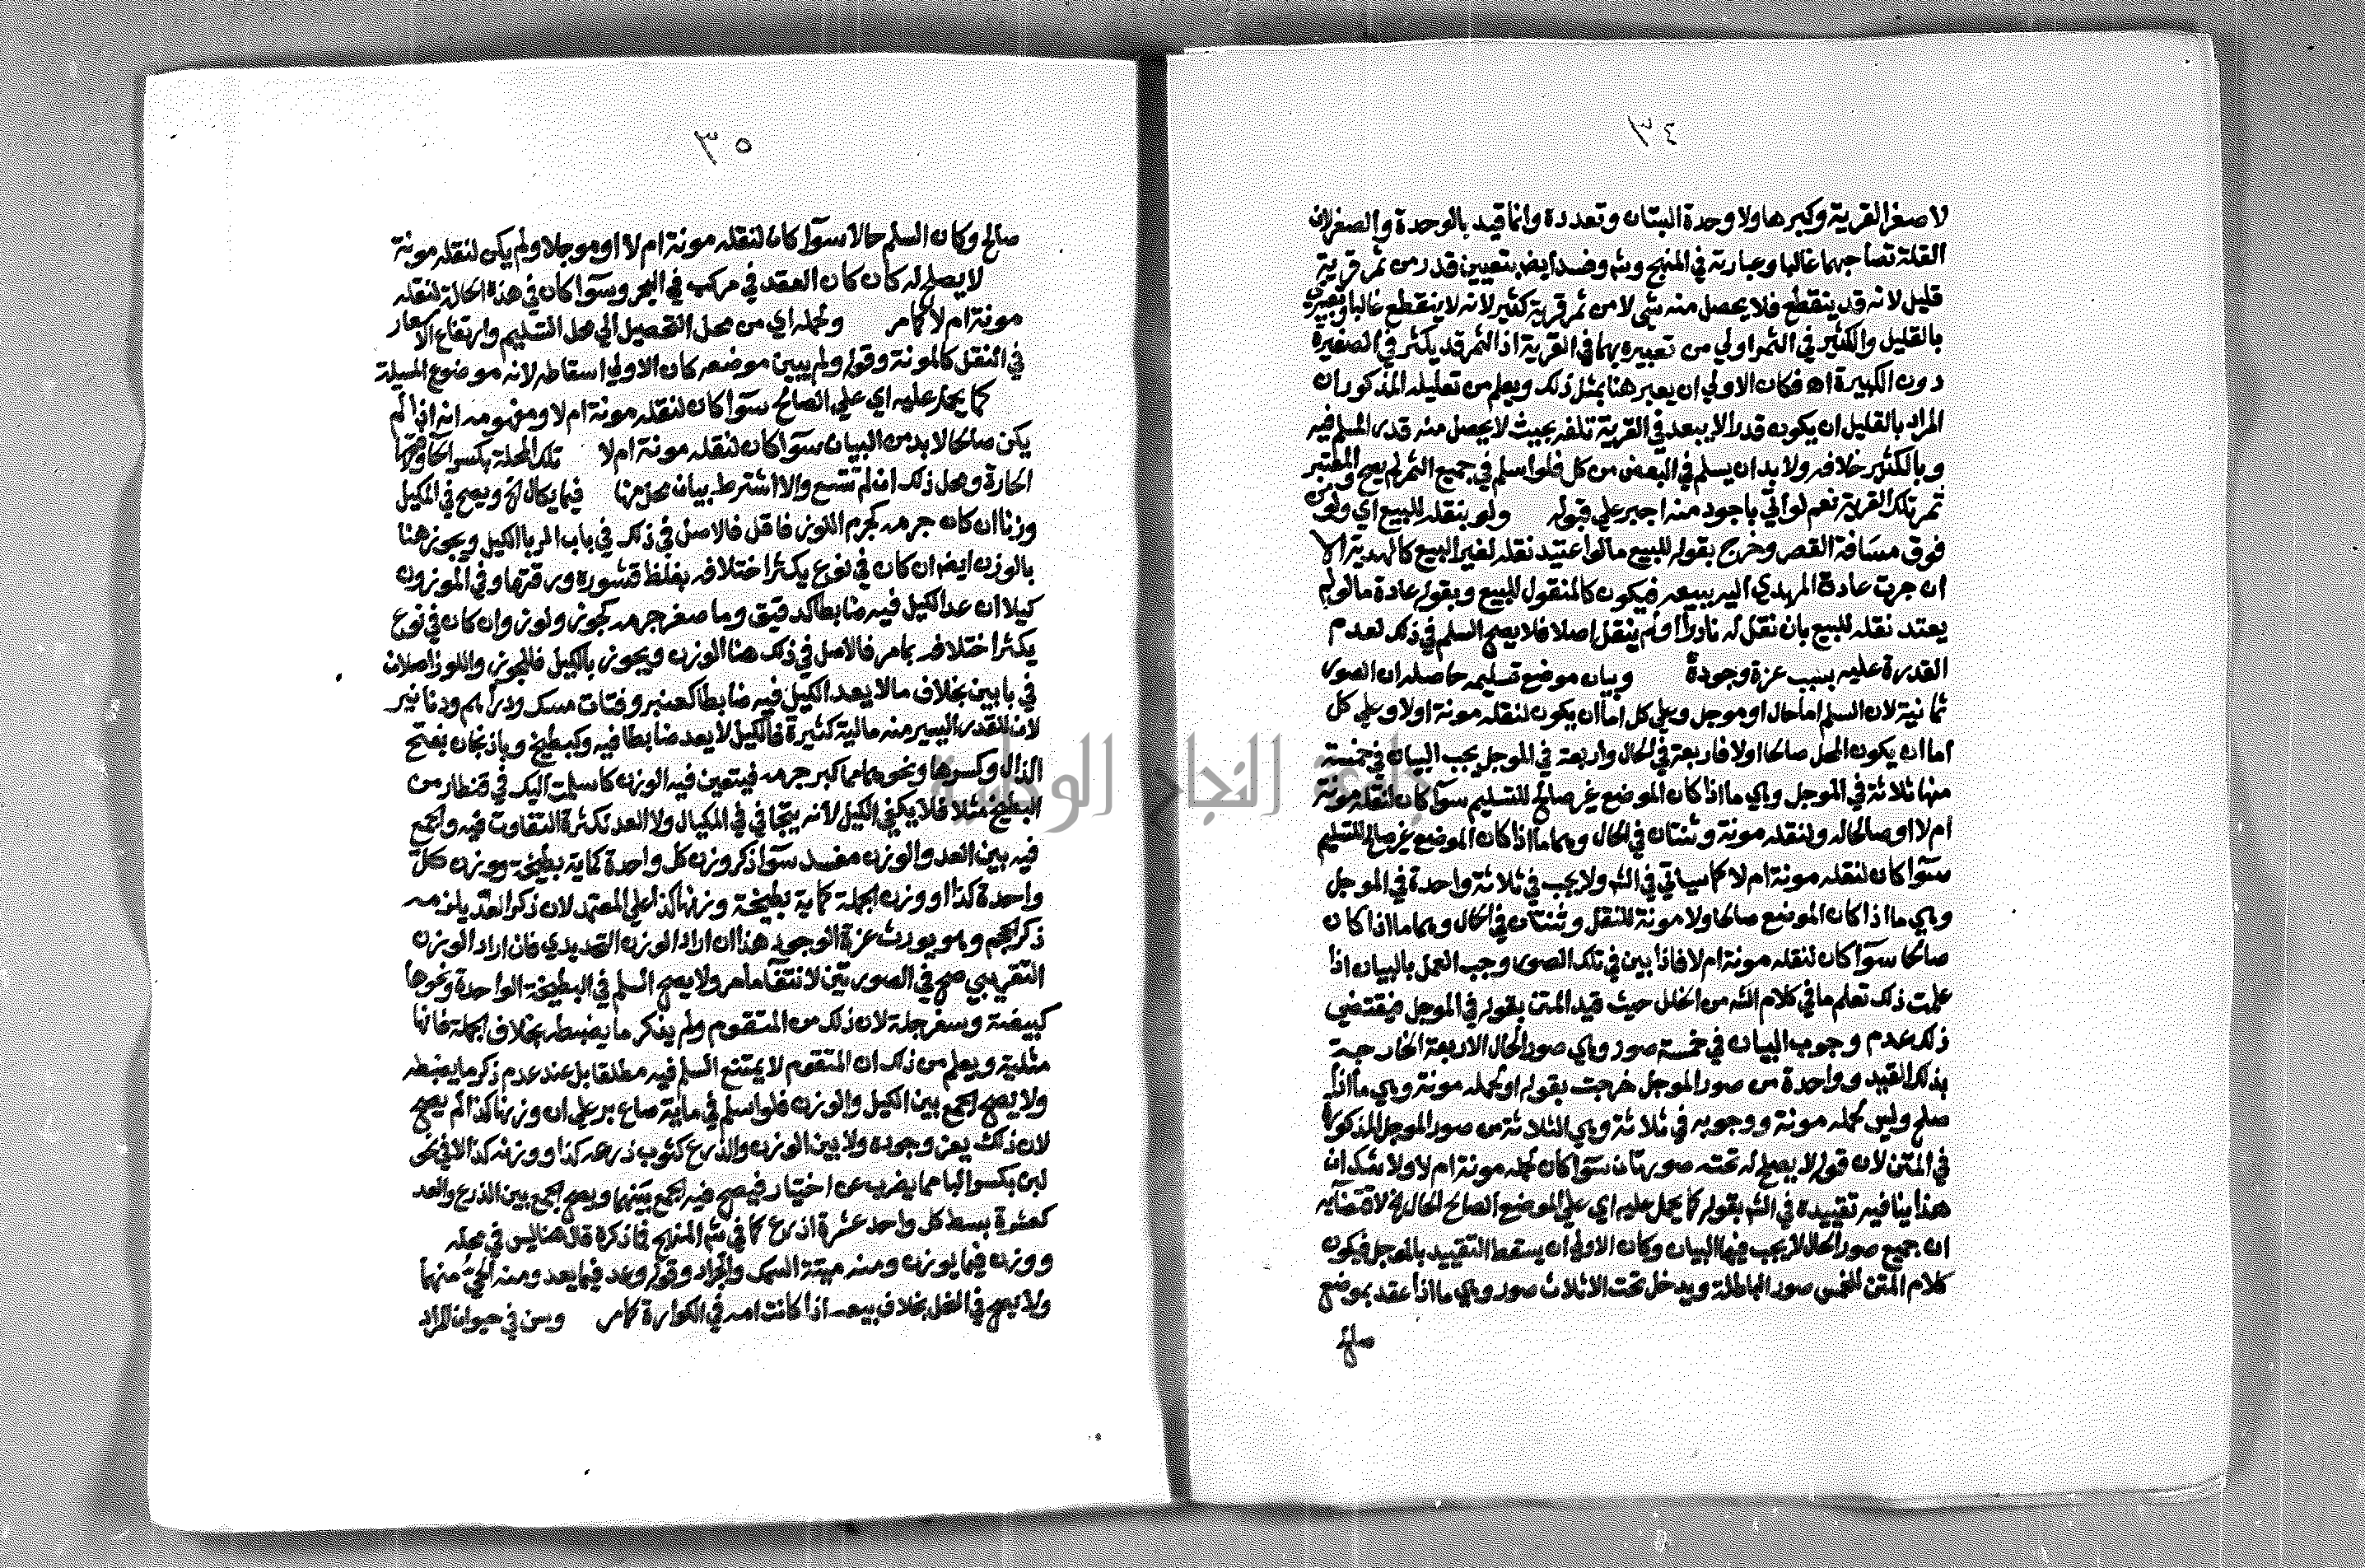 ٣٤
لا صغر القرية وكبرها ولا وحدة البستان وتعدده وانما قيد بالوحدة والصغر لان
القلة تصاحبهما غالبا وعبارته في المنهج وشر وفسد ايض بتعيين قدر من ثمر قرية
قليل لانه قد ينقطع فلا يحصل منه شي لا من ثمر قرية كثير لانه لا ينقطع غالبا وتعبيري
بالقليل والكثير في الثمر اولي من تعبيره بهما في القرية اذ الثمر قد يكثر في الصغيرة
دون الكبيرة اه فكان الاولي ان يعبر هنا بمثل ذلك ويعلم من تعليله المذكور ان
المراد بالقليل ان يكون قدرا لا يبعد في القرية تلفه بحيث لا يحصل منه قدر المسلم فيه
وبالكثير خلافه ولا بد ان يسلم في البعض من كل فلو اسلم في جميع الثمر لم يصح والمعتبر
ثمر تلك القرية نعم لو اتي باجود منه اجبر علي قبوله ولو بنقله للبيع اي ولو من
فوق مسافة القصر وخرج بقوله للبيع ما لو اعتيد نقله لغير البيع كالهدية الا
ان جرت عادة المهدي اليه ببيعه فيكون كالمنقول للبيع وبقوله عادة ما لو لم
يعتد نقله للبيع بان نقل له نادرا او لم ينقل اصلا فلا يصح السلم في ذلك لعدم
القدرة عليه بسبب عزة وجوده وبيان موضع تسليمه حاصله ان الصور
ثمانية لان السلم اما حال او موجل وعلي كل اما ان يكون لنقله مونة اولا وعلي كل
اما ان يكون المحل صالحا اولا فاربعة في الحال واربعة في الموجل يجب البيان في خمسة
منها ثلاثة في الموجل وهي ما اذا كان الموضع غير صالح للتسليم سوآ كان لنقله مونة
ام لا او صالحا له ولنقله مونة وثنتان في الحال وهما ما اذا كان الموضع غير صالح للتسليم
سوآ كان لنقله مونة ام لا كما سياتي في الشر ولا يجب في ثلاثة واحدة في الموجل
وهي ما اذا كان الموضع صالحا ولا مونة للنقل وثنتان في الحال وهما ما اذا كان
صالحا سوآ كان لنقله مونة ام لا فاذا بين في تلك الصور وجب العمل بالبيان اذا
علمت ذلك تعلم ما في كلام الشر من الخلل حيث قيد المتن بقوله في الموجل فيقتضي
ذلك عدم وجوب البيان في خمسة صور وهي صور الحال الاربعة الخارجة
بذلك القيد وواحدة من صور الموجل خرجت بقوله او لحمله مونة وهي ما اذا
صلح وليس لحمله مونة ووجوبه في ثلاثة وهي الثلاثة من صور الموجل المذكورة
في المتن لان قوله لا يصلح له تحته صورتان سوآ كان لحمله مونة ام لا ولا شك ان
هذا ينافيه تقييده في الشر بقوله كما يحمل عليه اي علي الموضع الصالح الحال الخ لاقتضآيه
ان جميع صور الحال لا يجب فيها البيان وكان الاولي ان يسقط التقييد بالموجل فيكون
كلام المتن للخمس صور الباطلة ويدخل تحت الا ثلاث صور وهي ما اذا عقد بموضع
صالح
٣٥
صالح وكان السلم حالا سوآ كان لنقله مونة ام لا او موجلا ولم يكن لنقله مونة
لا يصلح له كان كان العقد في مركب في البحر وسوآ كان في هذه الحالة لنقله
مونة ام لا كما مر ولحمله اي من محل التحصيل الي محل التسليم وارتفاع الاسعار
في النقل كالمونة وقوله ولم يبين موضعه كان الاولي اسقاطه لانه موضوع المسيلة
كما يحمل عليه اي علي الصالح سوآ كان لنقله مونة ام لا ومفهومه انه اذا لم
يكن صالحا لا بد من البيان سوآ كان لنقله مونة ام لا تلك المحلة بكسر الحا وفتحها
الحارة ومحل ذلك ان لم تتسع والا اشترط بيان محل منها فيما يكال الخ ويصح في المكيل
وزنا ان كان جرمه كجرم اللوز فاقل فالاصل في ذلك في باب الربا الكيل ويجوز هنا
بالوزن ايض ان كان في نوع يكثر اختلافه بغلظ قشوره ورقتها وفي الموزون
كيلا ان عد الكيل فيه ضابطا كدقيق وما صغر جرمه كجوز ولوز وان كان في نوع
يكثر اختلافه بما مر فالاصل في ذلك هنا الوزن ويجوز بالكيل فللجوز واللوز اصلان
في بابين بخلاف ما لا يعد الكيل فيه ضابطا كعنبر وفتات مسك ودراهم ودنانير
لان للقدر اليسير منه مالية كثيرة فالكيل لا يعد ضابطا فيه وكبطيخ وباذنجان بفتح
الذال وكسرها ونحوهما مما كبر جرمه فيتعين فيه الوزن كاسلمت اليك في قنطار من
البطيخ مثلا فلا يكفي الكيل لانه يتجافي في المكيال ولا العد لكثرة التفاوت فيه والجمع
فيه بين العد والوزن مفسد سوآ ذكر وزن كل واحدة كماية بطيخة ووزن كل
واحدة كذا او وزن الجملة كماية بطيخة وزنها كذا علي المعتمد لان ذكر العدد يلزمه
ذكر الحجم وهو يورث عزة الوجود هذا ان اراد الوزن التحديدي فان اراد الوزن
التقريبي صح في الصورتين لانتفآ ما مر ولا يصح السلم في البطيخة الواحدة ونحوها
كبيضة وسفرجلة لان ذلك من المتقوم ولم يذكر ما يضبطه بخلاف الجملة فانها
مثلية ويعلم من ذلك ان المتقوم لا يمتنع السلم فيه مطلقا بل عند عدم ذكر ما يضبطه
ولا يصح الجمع بين الكيل والوزن فلو اسلم في ماية صاع بر علي ان وزنها كذا لم يصح
لان ذلك يعز وجوده ولا بين الوزن والذرع كثوب ذرعه كذا ووزنه كذا الا في نحو
لبن بكسر البا مما يضرب عن اختيار فيصح فيه الجمع بينهما ويصح الجمع بين الذرع والعد
كعشرة بسط كل واحد عشرة اذرع كما في شر المنهج فما ذكره قال هنا ليس في محله
ووزن فيما يوزن ومنه ميتة السمك والجراد وقوله وعد فيما يعد ومنه الحي منهما
ولا يصح في النحل بخلاف بيعه اذا كانت امه في الكوارة كما مر وسن في حيوان المراد